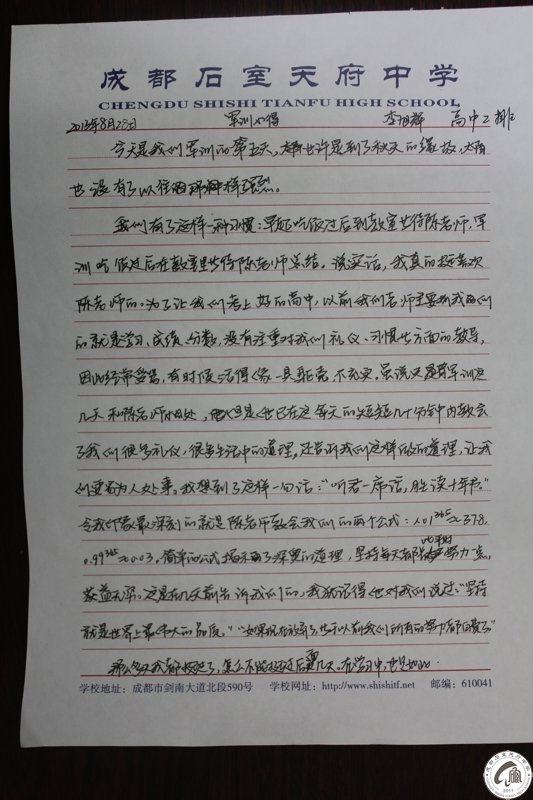 成都石室天府中学
CHENGDU SHISHI TIANFU HIGH SCHOOL
2013年8月28日 军训心得 高中2排
今天是我们军训的第五天，也许是到了秋天的缘故，太阳
也没有了以往的那种样强烈。
我们有了这样一种习惯：早起吃饭过后到教室等待陈老师，军
训吃饭过后在教室里等待陈老师总结。说实话，我真的挺喜欢
陈老师的。为了让我们考上好的高中，以前我们老师主要对我们
的就是学习、成绩、分数，没有注重对我们礼仪、习惯等方面的教导，
因此经常，有时候活得像一具躯壳不充实。虽说只是军训这
几天和陈老师相处，但是他已在这每天的短短几十分钟内教会
了我们很多礼仪，很多生活中的道理。还告诉我们这样的道理，让我
们更为人处事。我想到了这样一句话：“听君一席话，胜读十年书。”
令我印象最深刻的就是陈老师教会我们的两个公式：1.01³⁶⁵≈37.8
0.99³⁶⁵≈0.03。简单的公式揭示了深奥的道理，坚持每天都比平时努力一点，
获益无穷。这是在几天前告诉我们的，我犹记得他对我们说过：“坚持
就是世界上最伟大的品质。”“如果现在放弃了，等于以前我们所有的努力都白费了。”
那么多天我都挺过了，怎么不能挺过后面几天。在学习中，也是如此。
学校地址：成都市剑南大道北段590号 学校网址：http://www.shishitf.net 邮编：610041
2011